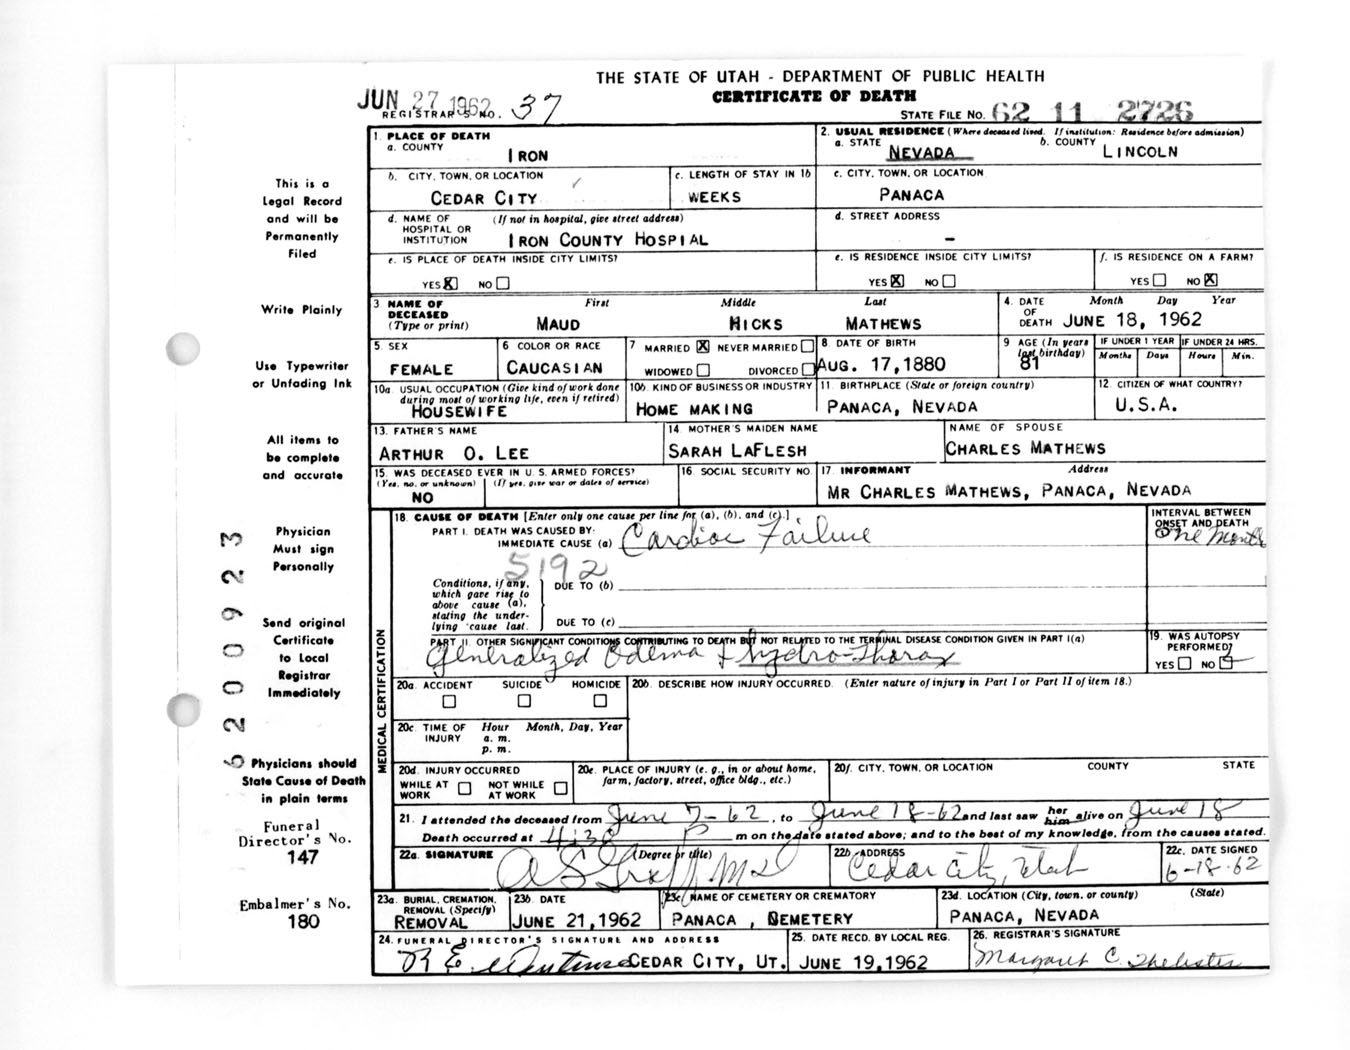 THE STATE OF UTAH - DEPARTMENT OF PUBLIC HEALTH
CERTIFICATE OF DEATH
JUN 27 1962
REGISTRAR'S NO. 37
STATE FILE NO. 62 11 2726
This is a
Legal Record
and will be
Permanently
Filed
Write Plainly
Use Typewriter
or Unfading Ink
All items to
be complete
and accurate
Physician
Must sign
Personally
Send original
Certificate
to Local
Registrar
Immediately
Physicians should
State Cause of Death
in plain terms
Funeral
Director's No.
147
Embalmer's No.
180
6200923
1. PLACE OF DEATH
a. COUNTY
IRON
2. USUAL RESIDENCE (Where deceased lived. If institution: Residence before admission)
a. STATE NEVADA b. COUNTY LINCOLN
b. CITY, TOWN, OR LOCATION
CEDAR CITY
c. LENGTH OF STAY IN 1b
WEEKS
c. CITY, TOWN, OR LOCATION
PANACA
d. NAME OF (If not in hospital, give street address)
HOSPITAL OR
INSTITUTION IRON COUNTY HOSPIAL
d. STREET ADDRESS
-
e. IS PLACE OF DEATH INSIDE CITY LIMITS?
YES X NO
e. IS RESIDENCE INSIDE CITY LIMITS?
YES X NO
f. IS RESIDENCE ON A FARM?
YES NO X
3 NAME OF DECEASED (Type or print)
First Middle Last
MAUD HICKS MATHEWS
4. DATE OF DEATH Month Day Year
JUNE 18, 1962
5. SEX
FEMALE
6 COLOR OR RACE
CAUCASIAN
7 MARRIED X NEVER MARRIED
WIDOWED DIVORCED
8. DATE OF BIRTH
AUG. 17,1880
9 AGE (In years last birthday)
81
IF UNDER 1 YEAR IF UNDER 24 HRS.
Months Days Hours Min.
10a. USUAL OCCUPATION (Give kind of work done
during most of working life, even if retired)
HOUSEWIFE
10b. KIND OF BUSINESS OR INDUSTRY
HOME MAKING
11. BIRTHPLACE (State or foreign country)
PANACA, NEVADA
12. CITIZEN OF WHAT COUNTRY?
U.S.A.
13. FATHER'S NAME
ARTHUR O. LEE
14. MOTHER'S MAIDEN NAME
SARAH LAFLESH
NAME OF SPOUSE
CHARLES MATHEWS
15. WAS DECEASED EVER IN U. S. ARMED FORCES?
(Yes, no, or unknown) (If yes, give war or dates of service)
NO
16. SOCIAL SECURITY NO.
17. INFORMANT Address
MR CHARLES MATHEWS, PANACA, NEVADA
MEDICAL CERTIFICATION
18. CAUSE OF DEATH [Enter only one cause per line for (a), (b), and (c).]
PART I. DEATH WAS CAUSED BY:
IMMEDIATE CAUSE (a) Cardiac Failure
INTERVAL BETWEEN
ONSET AND DEATH
One Month
5192
Conditions, if any,
which gave rise to
above cause (a),
stating the under-
lying cause last.
DUE TO (b)
DUE TO (c)
PART II. OTHER SIGNIFICANT CONDITIONS CONTRIBUTING TO DEATH BUT NOT RELATED TO THE TERMINAL DISEASE CONDITION GIVEN IN PART I(a)
Generalized Edema & hydro-Thorax
19. WAS AUTOPSY
PERFORMED?
YES NO
20a. ACCIDENT SUICIDE HOMICIDE
20b. DESCRIBE HOW INJURY OCCURRED. (Enter nature of injury in Part I or Part II of item 18.)
20c. TIME OF INJURY Hour Month, Day, Year
a. m.
p. m.
20d. INJURY OCCURRED
WHILE AT WORK NOT WHILE AT WORK
20e. PLACE OF INJURY (e. g., in or about home,
farm, factory, street, office bldg., etc.)
20f. CITY, TOWN, OR LOCATION COUNTY STATE
21. I attended the deceased from June 7-62, to June 18-62 and last saw her him alive on June 18
Death occurred at 4:30 P m on the date stated above; and to the best of my knowledge, from the causes stated.
22a. SIGNATURE (Degree or title)
MD
22b. ADDRESS
Cedar City, Utah
22c. DATE SIGNED
6-18-62
23a. BURIAL, CREMATION,
REMOVAL (Specify)
REMOVAL
23b. DATE
JUNE 21,1962
23c. NAME OF CEMETERY OR CREMATORY
PANACA , CEMETERY
23d. LOCATION (City, town, or county) (State)
PANACA, NEVADA
24. FUNERAL DIRECTOR'S SIGNATURE AND ADDRESS
CEDAR CITY, UT.
25. DATE RECD. BY LOCAL REG.
JUNE 19,1962
26. REGISTRAR'S SIGNATURE
Margaret C.